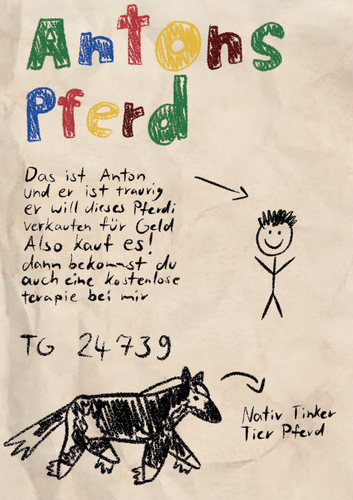 Antons
Pferd
Das ist Anton
und er ist traurig
er will dieses Pferdi
verkauten für Geld
Also kauf es!
dann bekommst du
auch eine kostenlose
terapie bei mir
TG 24739
Nativ Tinker
Tier Pferd